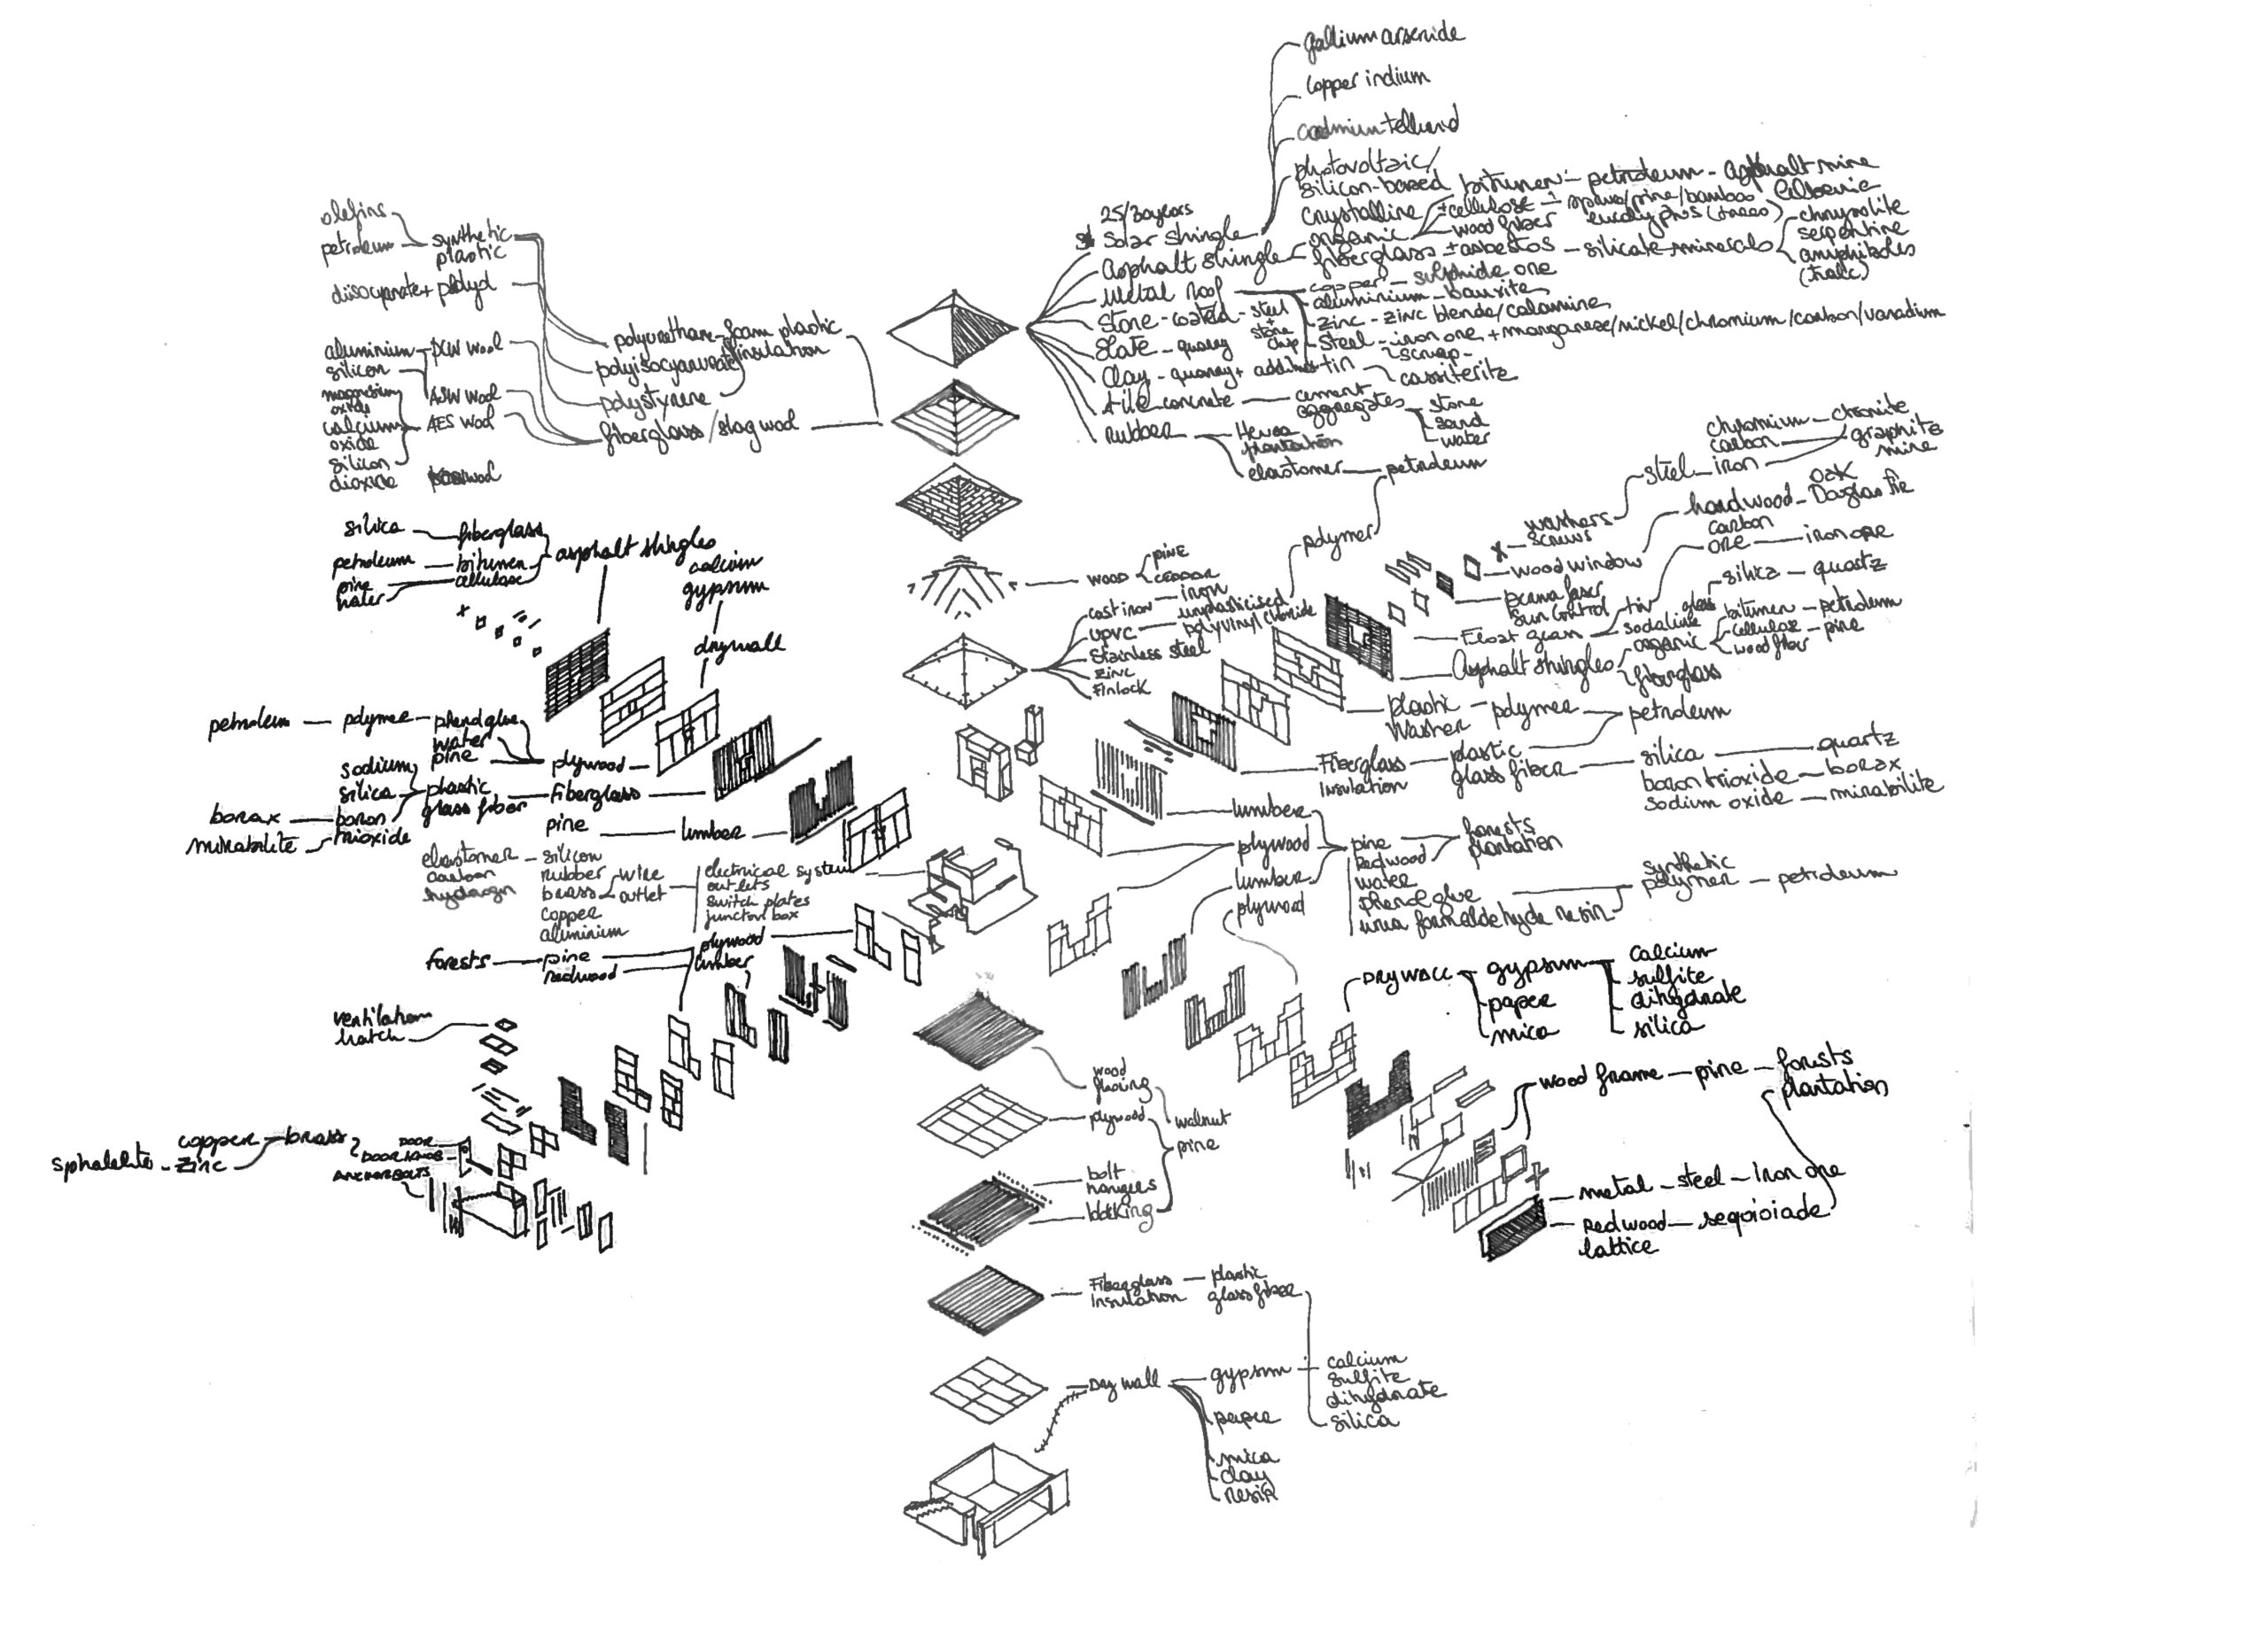 gallium arsenide
copper indium
cadmium tellurid
photovoltaic/
silicon-based
crystalline
organic
bitumen - petroleum - asphalt mine
± cellulose
wood fiber
25/30 years
Solar shingle
Asphalt shingle
fiberglass ± asbestos - silicate minerals
chrysolite
serpentine
amphiboles
(talc)
Metal Roof
copper - sulphide ore
aluminium - bauxite
zinc - zinc blende/calamine
steel - iron ore + manganese/nickel/chromium/carbon/vanadium
scrap
tin
cassiterite
Stone-coated - steel
+
stone
chip
Slate - quarry
Clay - quarry +
tile concrete - cement
aggregates
stone
sand
water
rubber
Hevea
plantation
elastomer - petroleum
olefins
petroleum - synthetic
plastic
diisocyanate + polyol
aluminium - PCW wool
silicon
ASW wool
magnesium
oxide
calcium
oxide
silicon
dioxide
AES wool
polyurethane - foam plastic
insulation
polyisocyanurate
polystyrene
fiberglass/slag wool
silica - fiberglass
petroleum - bitumen
pine
water
cellulose
asphalt shingles
calcium
gypsum
drywall
wood
pine
cast iron - iron
UPVC - unplasticised
polyvinyl chloride
polymer
Stainless steel
zinc
Finlock
washers
screws
steel - iron
chromium
carbon
graphite
mine
wood window
hardwood - Oak
Douglas Fir
carbon
ore - iron ore
Sun Control
Float glass
sodalime
glass
silica - quartz
Asphalt shingles
organic
bitumen - petroleum
cellulose - pine
wood fiber
fiberglass
plastic
Washer - polymer - petroleum
Fiberglass
Insulation
plastic
glass fiber
silica - quartz
boron trioxide - borax
sodium oxide - mirabilite
petroleum - polymer - phenol glue
water
pine
plywood
sodium
silica
boron
trioxide
borax
mirabilite
plastic
glass fiber
fiberglass
pine - lumber
elastomer - silicon
carbon
hydrogen
rubber
brass
copper
aluminium
wire
outlet
electrical system
outlets
switch plates
junction box
forests - pine
redwood
plywood
lumber
lumber
plywood
lumber
plywood
pine
Redwood
water
phenol glue
urea formaldehyde resin
forests
plantation
synthetic
polymer - petroleum
DRYWALL
gypsum
paper
mica
calcium
sulfite
dihydrate
silica
ventilation
hatch
sphalelite - zinc
copper
brass
DOOR
DOOR KNOB
ANCHOR BOLTS
wood
plywood
walnut
pine
bolt
hangers
wood frame - pine - forests
plantation
metal - steel - iron ore
Redwood
lattice
Fiberglass
Insulation
plastic
glass fiber
Dry wall
gypsum
paper
mica
clay
resin
calcium
sulfite
dihydrate
silica